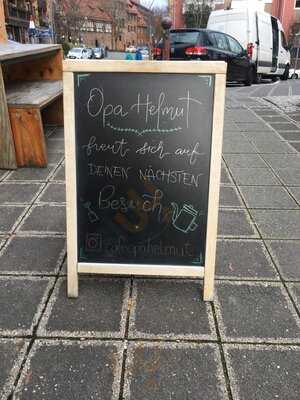 Opa Helmut
freut sich auf
DEINEN NÄCHSTEN
Besuch
@cafeopahelmut